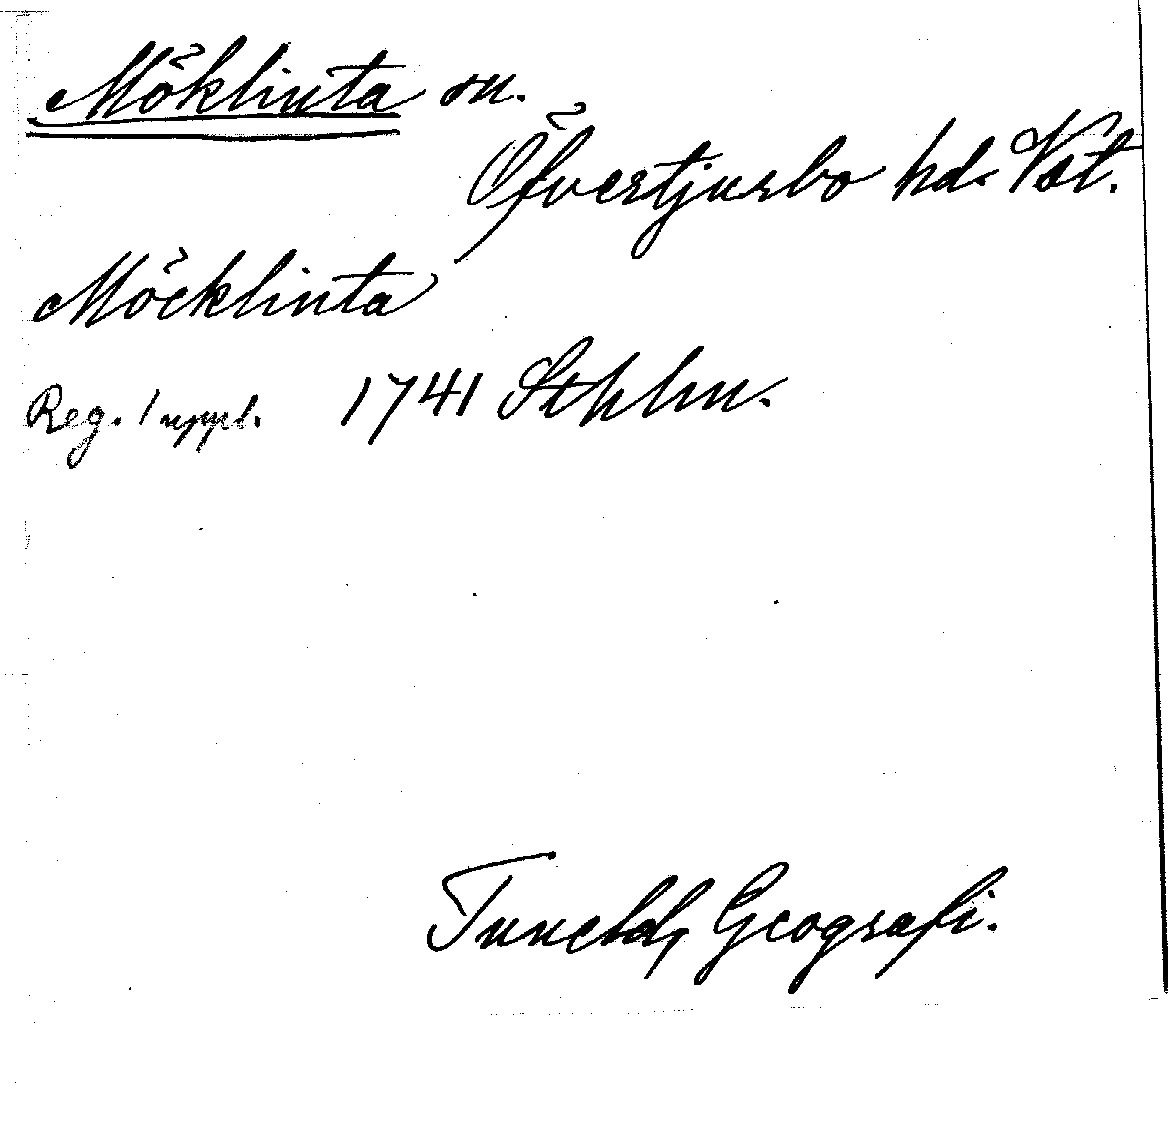 Möklinta sn.
Öfvertjurbo hd. Vst.
Möcklinta
Reg. 1 uppl. 1741 Sthlm.
Tuneld, Geografi.